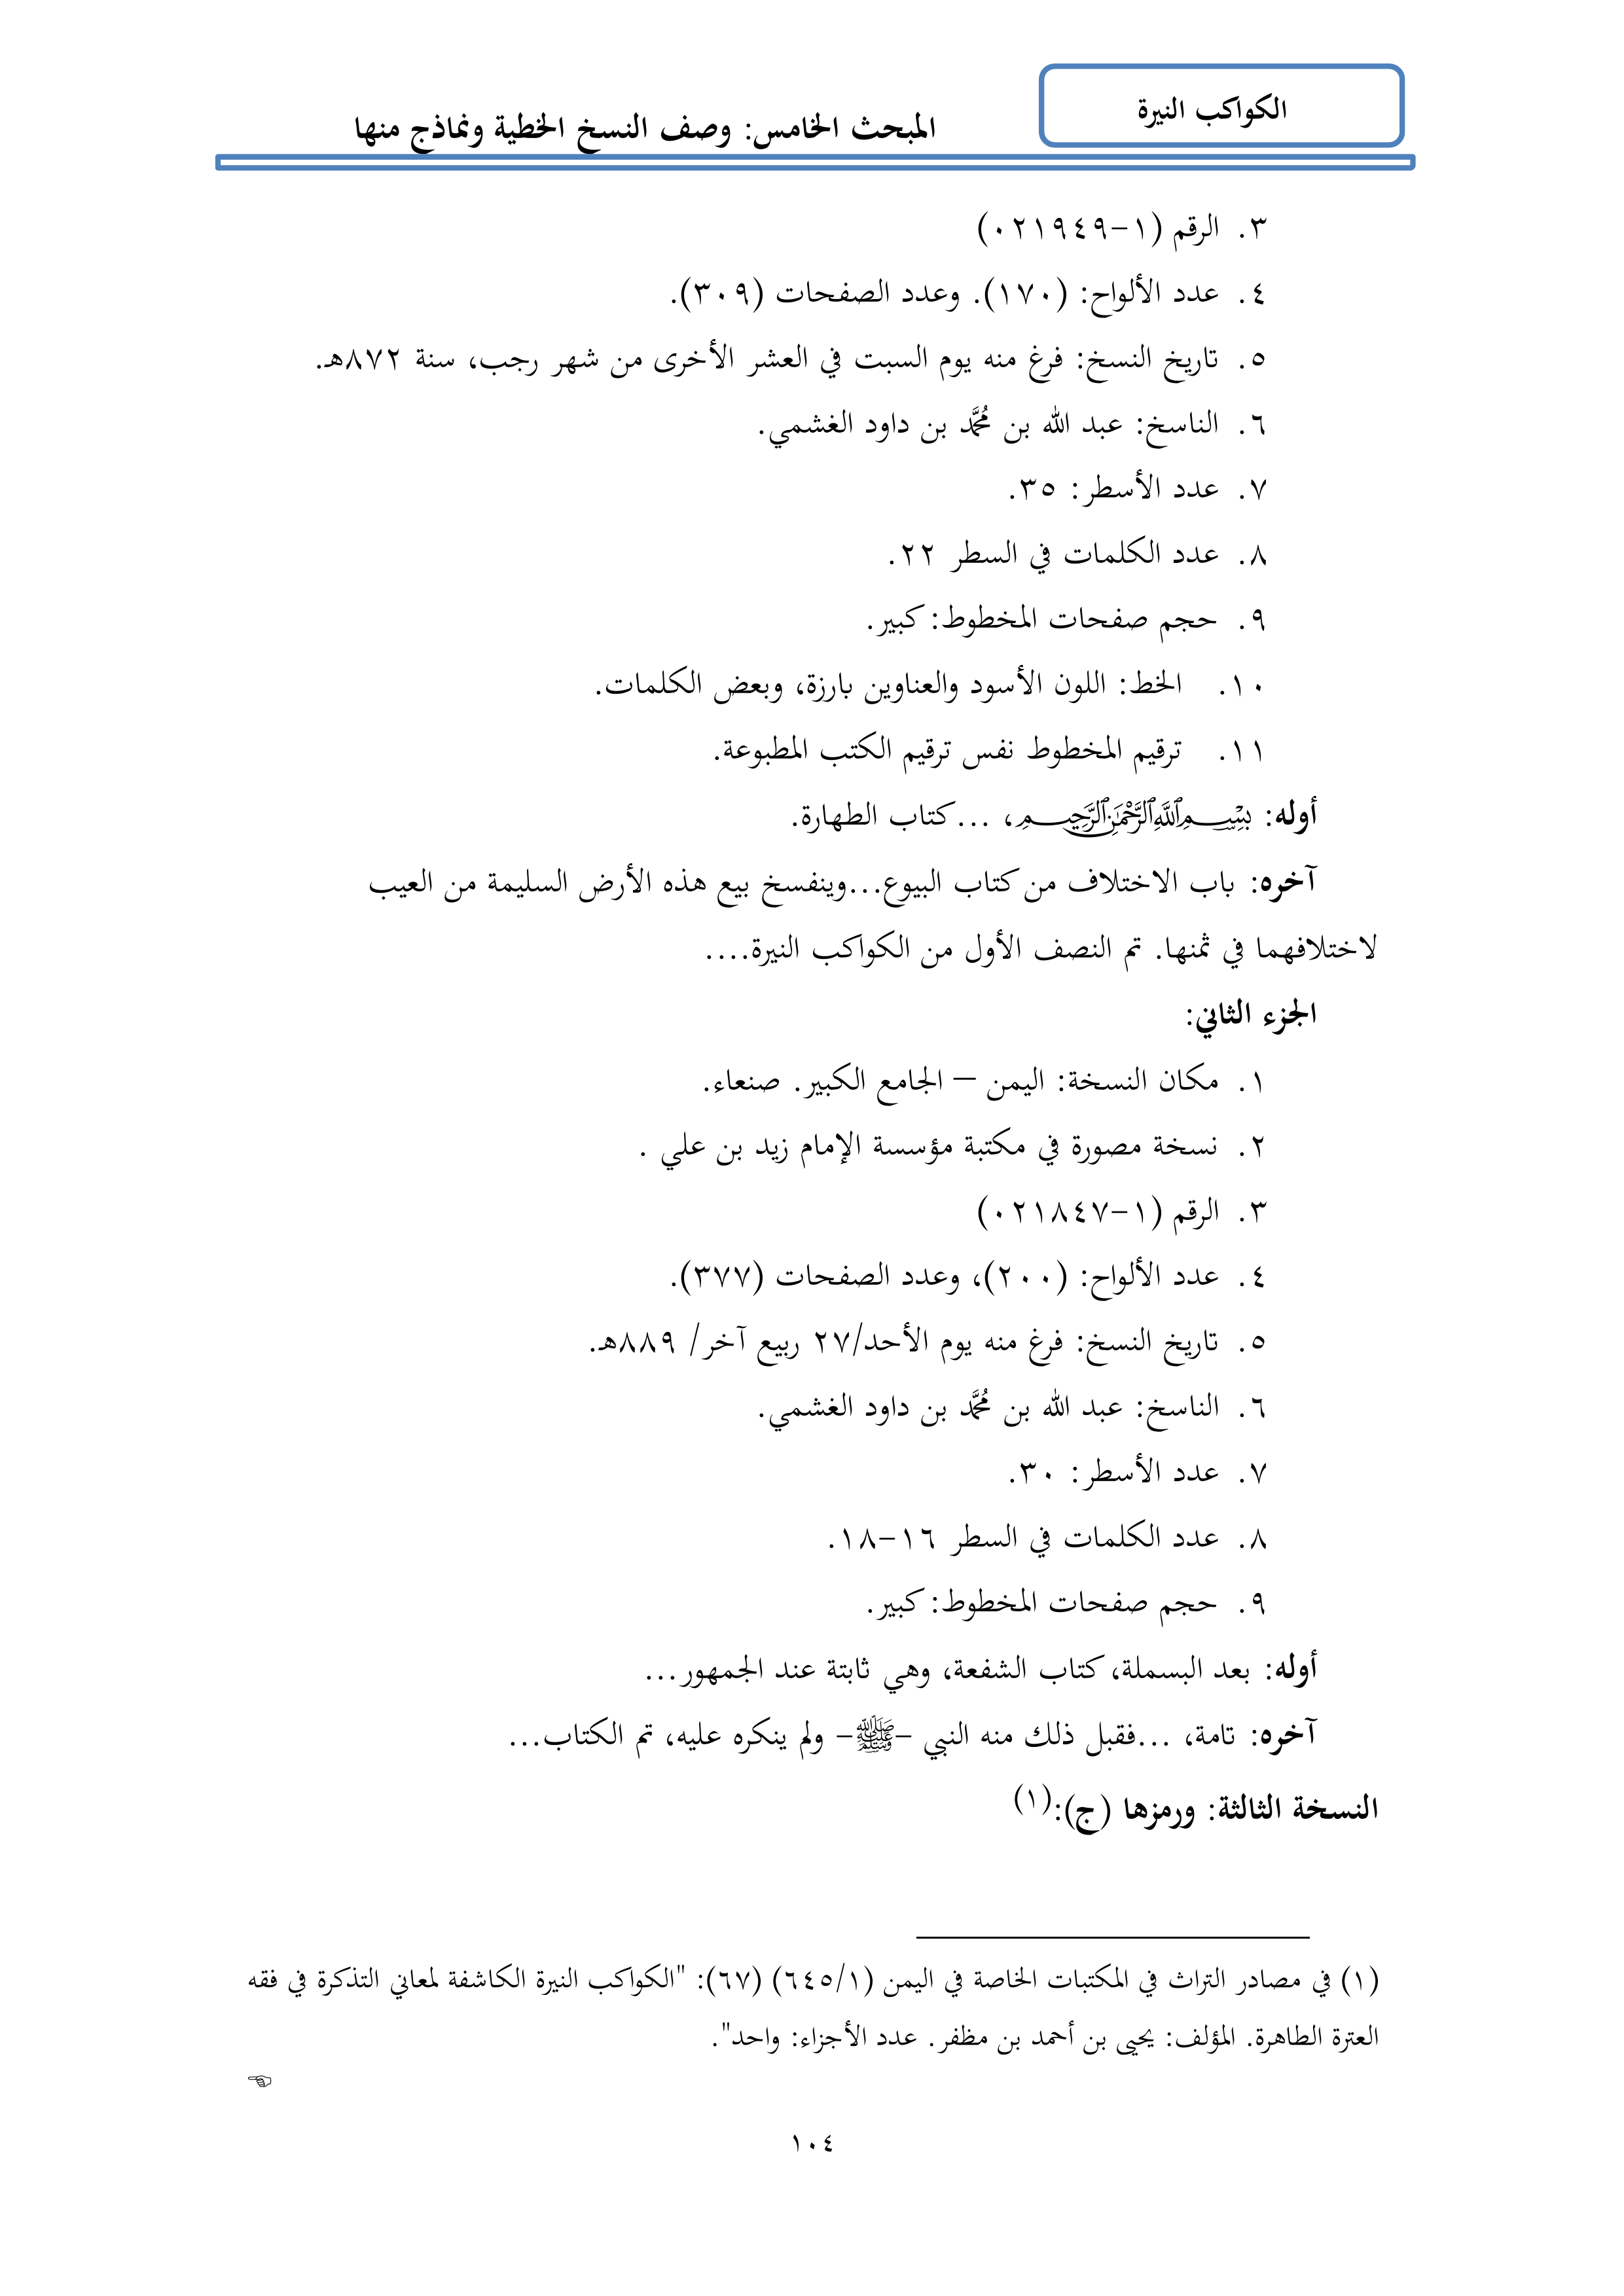 الكواكب النيرة
المبحث الخامس: وصف النسخ الخطية ونماذج منها
٣. الرقم (١-٠٢١٩٤٩)
٤. عدد الألواح: (١٧٠). وعدد الصفحات (٣٠٩).
٥. تاريخ النسخ: فرغ منه يوم السبت في العشر الأخرى من شهر رجب، سنة ٨٧٢هـ.
٦. الناسخ: عبد الله بن مُحَمَّد بن داود الغشمي.
٧. عدد الأسطر: ٣٥.
٨. عدد الكلمات في السطر ٢٢.
٩. حجم صفحات المخطوط: كبير.
١٠. الخط: اللون الأسود والعناوين بارزة، وبعض الكلمات.
١١. ترقيم المخطوط نفس ترقيم الكتب المطبوعة.
أوله: بِسْمِ اللَّهِ الرَّحْمَنِ الرَّحِيمِ، ...كتاب الطهارة.
آخره: باب الاختلاف من كتاب البيوع...وينفسخ بيع هذه الأرض السليمة من العيب
لاختلافهما في ثمنها. تم النصف الأول من الكواكب النيرة....
الجزء الثاني:
١. مكان النسخة: اليمن – الجامع الكبير. صنعاء.
٢. نسخة مصورة في مكتبة مؤسسة الإمام زيد بن علي .
٣. الرقم (١-٠٢١٨٤٧)
٤. عدد الألواح: (٢٠٠)، وعدد الصفحات (٣٧٧).
٥. تاريخ النسخ: فرغ منه يوم الأحد/٢٧ ربيع آخر/ ٨٨٩هـ.
٦. الناسخ: عبد الله بن مُحَمَّد بن داود الغشمي.
٧. عدد الأسطر: ٣٠.
٨. عدد الكلمات في السطر ١٦-١٨.
٩. حجم صفحات المخطوط: كبير.
أوله: بعد البسملة، كتاب الشفعة، وهي ثابتة عند الجمهور...
آخره: تامة، ...فقبل ذلك منه النبي -ﷺ- ولم ينكره عليه، تم الكتاب...
النسخة الثالثة: ورمزها (ج):(١)
(١) في مصادر التراث في المكتبات الخاصة في اليمن (٦٤٥/١) (٦٧): "الكواكب النيرة الكاشفة لمعاني التذكرة في فقه
العترة الطاهرة. المؤلف: يحيى بن أحمد بن مظفر. عدد الأجزاء: واحد".
١٠٤